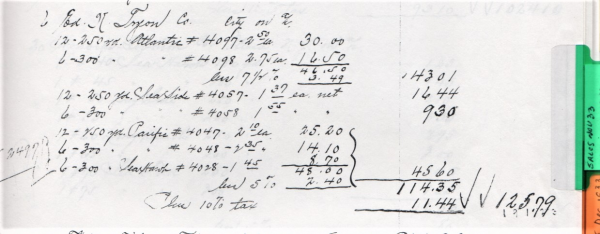 6 Ed. K Tryon Co. City on a/c
12-250 yd. Atlantic #4097-2 50 ea. 30.00
6-300 " " #4098 2.75 ea. 16.50
46.50
less 7½% 3.49 43 01
12-250 yd. Sea Side #4057-1 37 ea. net 16 44
6-300 " " #4058 1 55 " " 9 30
12-250 yd. Pacific #4047-2 10 ea. 25.20
6-300 " " #4048-2 35 " 14.10
6-300 " #4028-1 45 8.70
48.00 45 60
less 5% 2.40 114.35
Plus 10% tax 11.44 125.79
SALES NOV 33